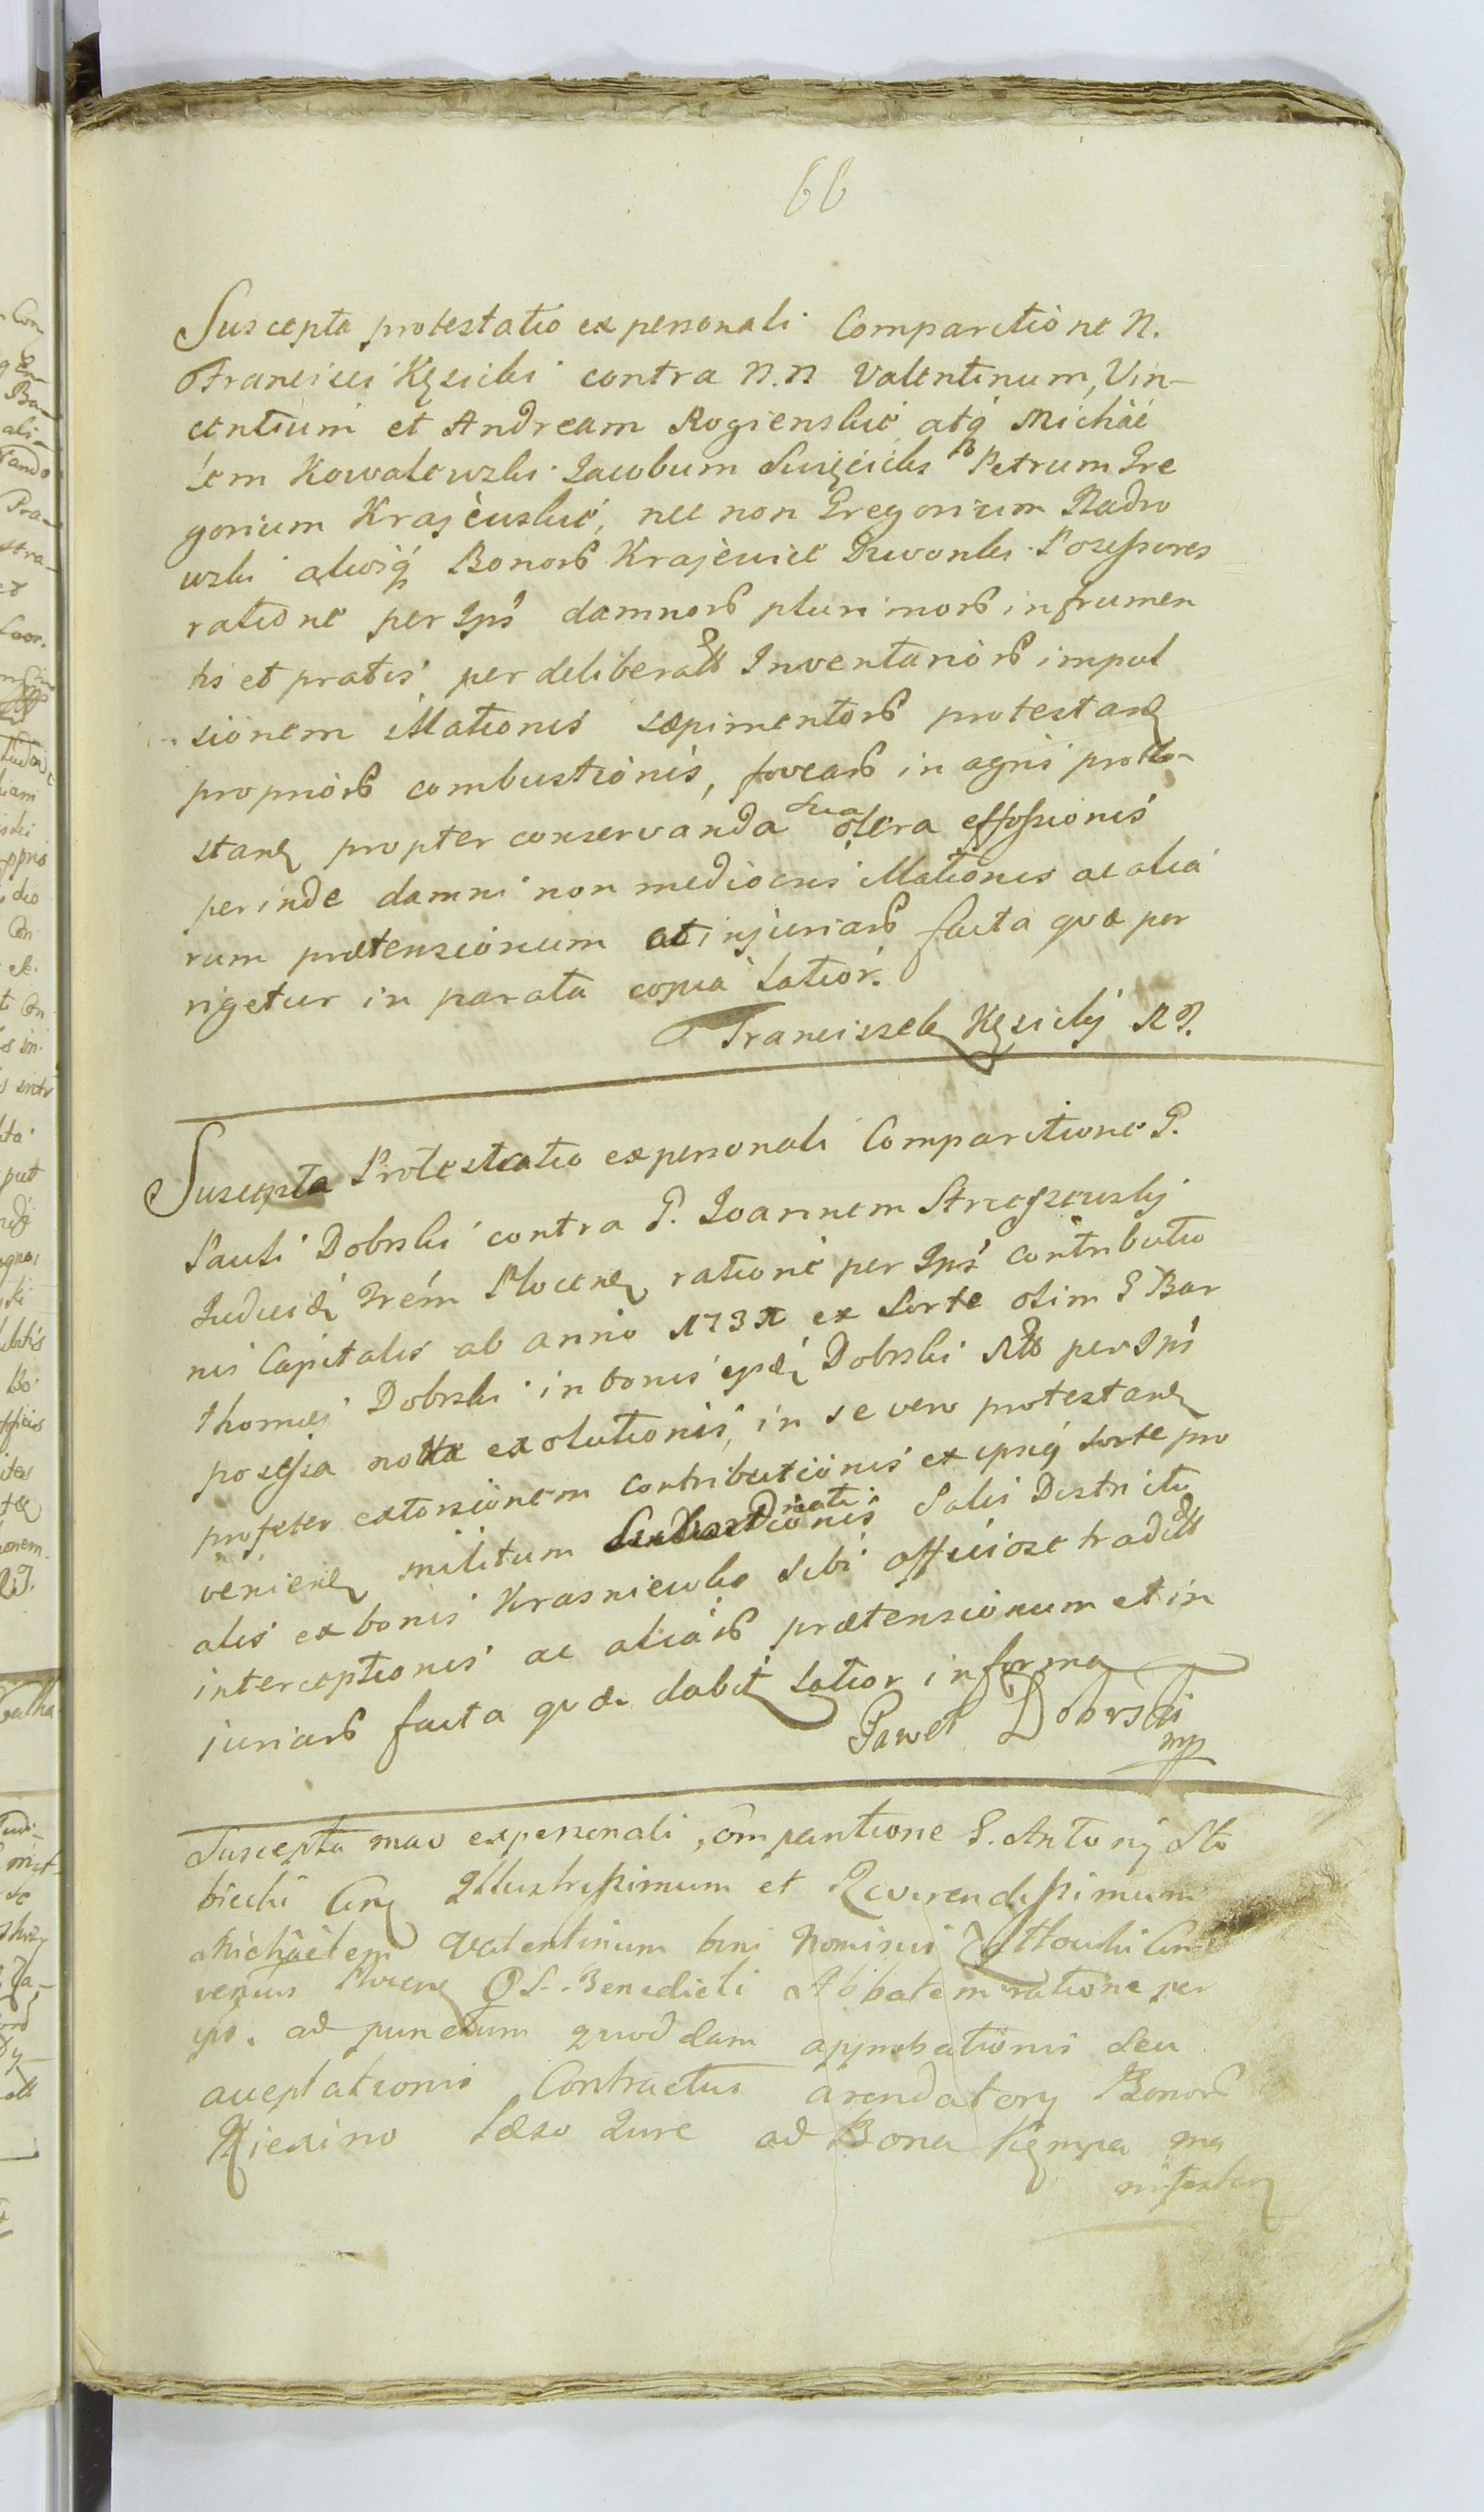 66
Suscepta protestatio ex personali Comparitione N.
Francisci Kęsicki contra N.N Valentinum, Vin-
centium et Andream Rogienskie atq Michäé
lem Kowalewski Jacobum Święcicki Petrum Gre
gorium Krajewskie, nec non Gregorium Nadro
wski aliosq Bonorꝫ Krajewice Dzwonki Possessores
ratione per Ips damnorꝫ plurimorꝫ in frumen
tis et pratis per deliberatt Inventariorꝫ impul
sionem illationis sæpimentorꝫ protestanꝫ
propriorꝫ combustionis, fovearꝫ in agris prote-
stanꝫ propter conservanda sua olera effossionis
perinde damni non mediocris illationis ac alia
rum prætensionum et injuriarꝫ facta qvæ per
rigetur in parata copia latior.
Franciszek Kęsicky RP.
Suscepta Protestatio ex personali Comparitione P.
Pauli Dobrski contra P. Joannem
Judicii Plocenꝫ ratione per Ips contributio
nis Capitalis ab anno ex Sorte olim P Bar
thomei Dobrski in bonis Dobrski per Ips
possessa exolutionis, in se vero protestanꝫ
propter extorsionem contributionis ex ipsiq sorte pro
venienꝫ militum Salis District
alis ex bonis Krasniewko sibi officiose tradett
interceptionis ac aliarꝫ prætensionum et in
juriarꝫ facta qvæ dabit latior in forma
Paweł Dobrski
mp
Suscepta ex personali Comparitione P. Antonij Sto
biecki Illustrissimum et Reverendissimum
Michäelem Valentinum bini Nominis Con
ventus S. Benedicti Abbatem ratione per
ips. ad punctum quoddam approbationis seu
acceptationis Contractus arendatory Bonorꝫ
læso Jure ad Bona Kempa ma
nifestanꝫ